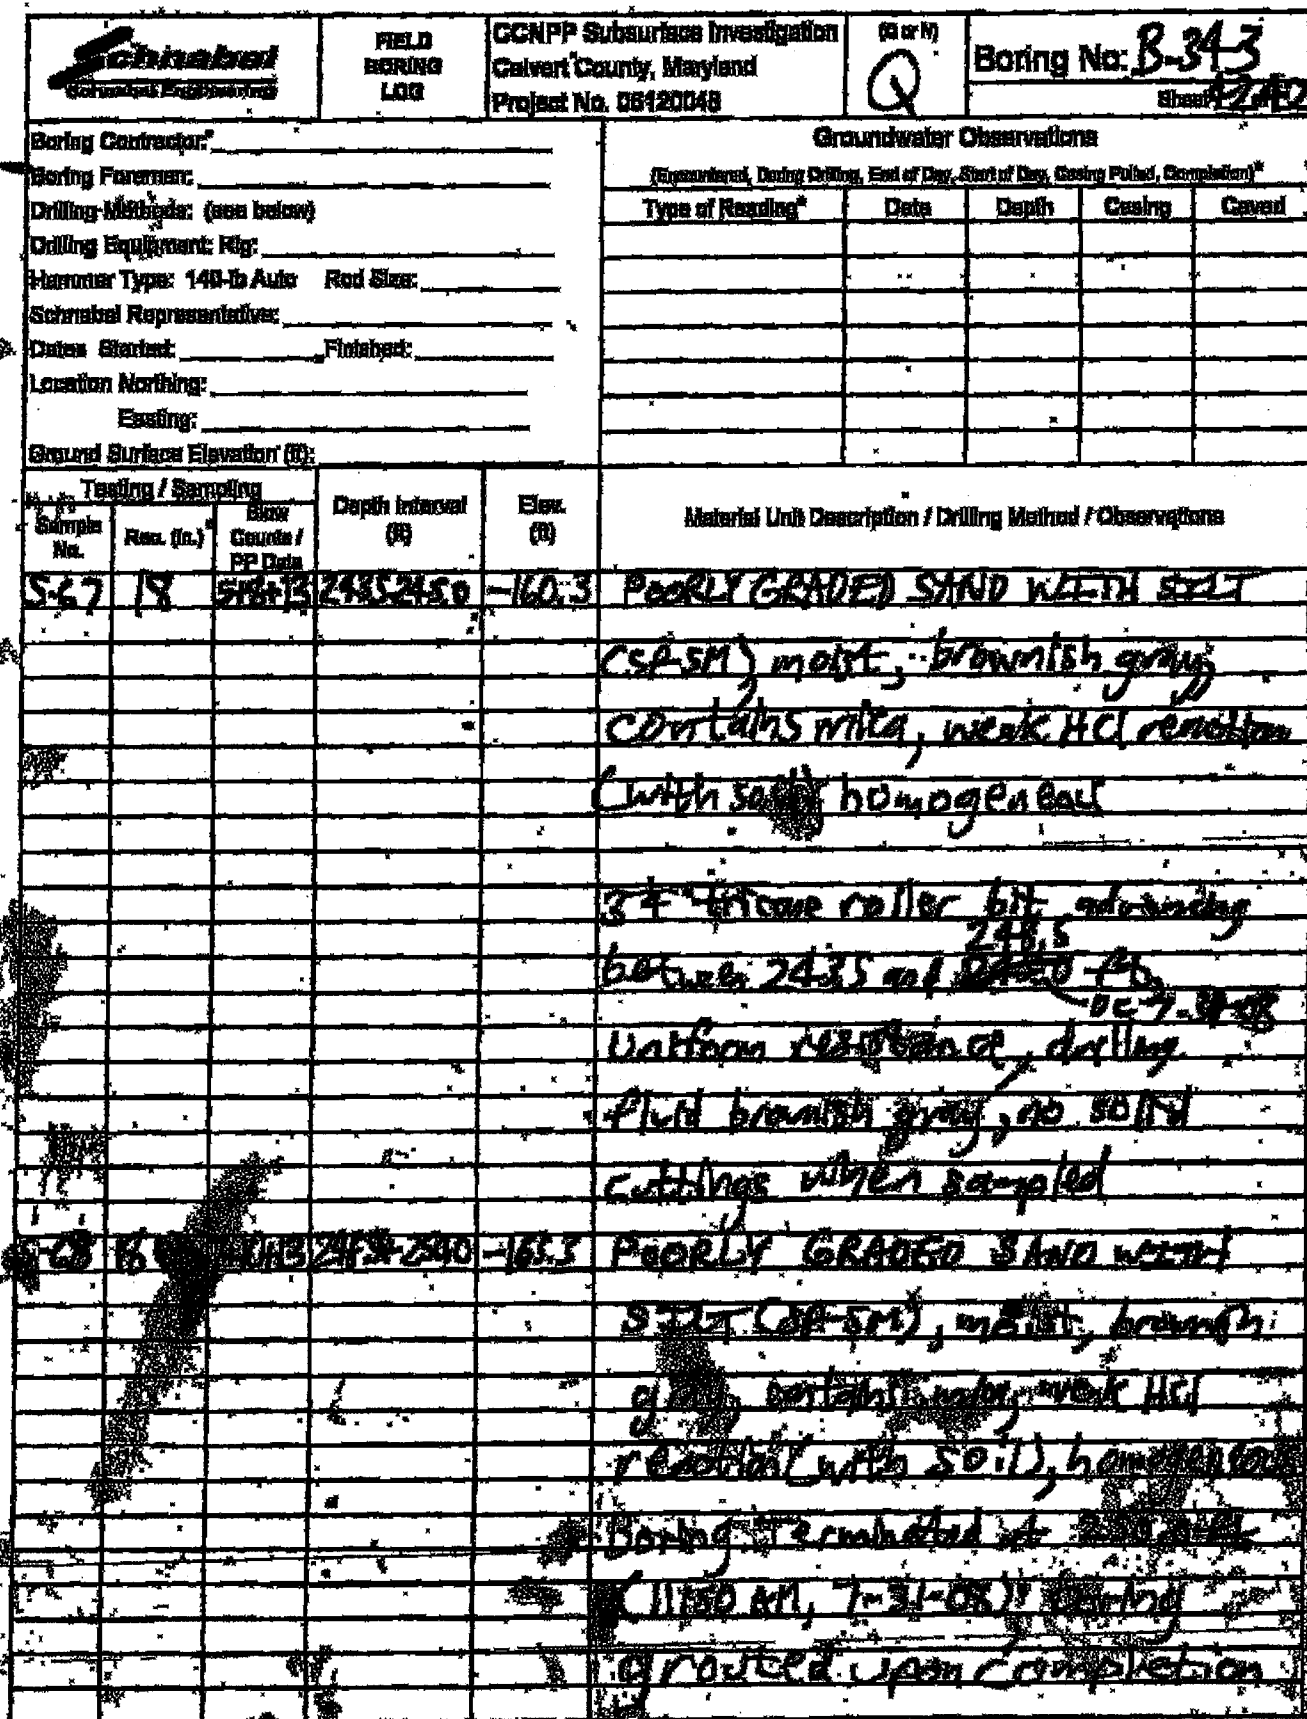 Schnabel
Schnabel Engineering
FIELD
BORING
LOG
CCNPP Subsurface Investigation
Calvert County, Maryland
Project No. 06120048
(Q or N)
Q
Boring No: B-343
Sheet
Boring Contractor:*
Boring Foreman:
Drilling Methods: (see below)
Drilling Equipment: Rig:
Hammer Type: 140-lb Auto Rod Size:
Schnabel Representative:
Dates Started: Finished:
Location Northing:
Easting:
Ground Surface Elevation (ft):
Groundwater Observations
(Encountered, During Drilling, End of Day, Start of Day, Casing Pulled, Completion)*
Type of Reading* Date Depth Casing Caved
Testing / Sampling
Sample No. Rec. (in.)* Blow Counts / PP Data Depth Interval (ft) Elev. (ft) Material Unit Description / Drilling Method / Observations
S-67 18 5+8+13 243.5-245.0 -160.3 POORLY GRADED SAND WITH SILT
(SP-SM), moist, brownish gray,
contains mica, weak HCl reaction
(with soil) homogeneous
tricone roller bit advancing
248.5
between 243.5 and ft,
Uniform resistance, drilling
fluid brownish gray, no solid
cuttings when sampled
-68 -165.3 POORLY GRADED SAND WITH
SILT (SP-SM), moist, brownish
gray, contains mica, weak HCl
reaction (with soil), homogeneous
Boring Terminated at
(11:50 AM, 7-31-08) boring
grouted upon completion